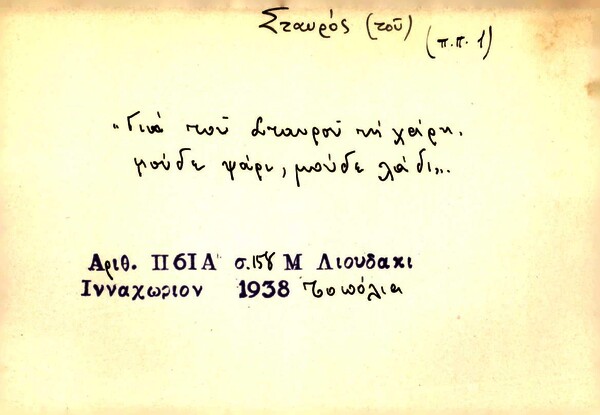 Σταυρός (τοῦ)
(π.π. 1)
"Γιά τοῦ Σταυροῦ τή χάρη,
μούδε ψάρι, μούδε λάδι".
Αριθ. Π61Α σ.158 Μ Λιουδακι
Ινναχωριον 1938 Τοπόλια